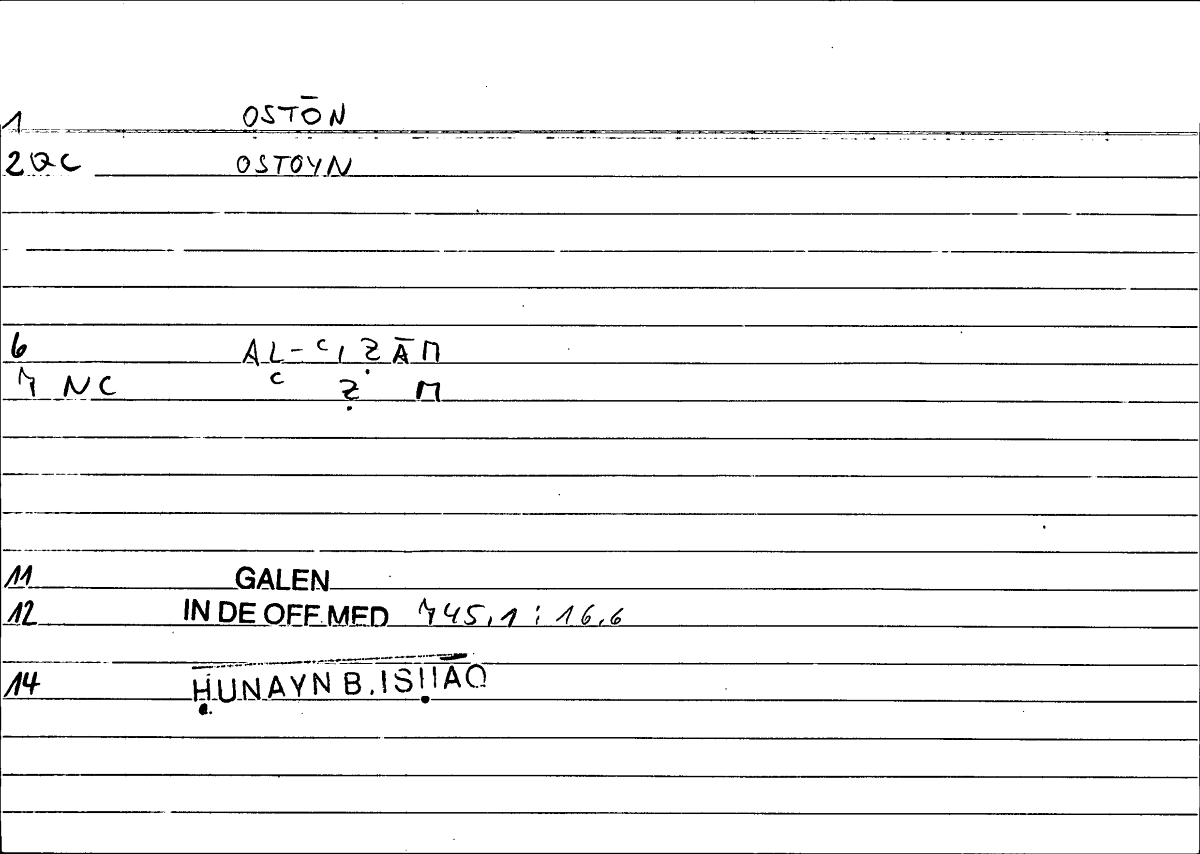 1 OSTŌN
2QC OSTOYN
6 AL-ʿIẒĀM
7 NC ʿ Ẓ M
11 GALEN
12 IN DE OFF.MED 745,1 : 16,6
14 ḤUNAYN B. ISḤĀQ